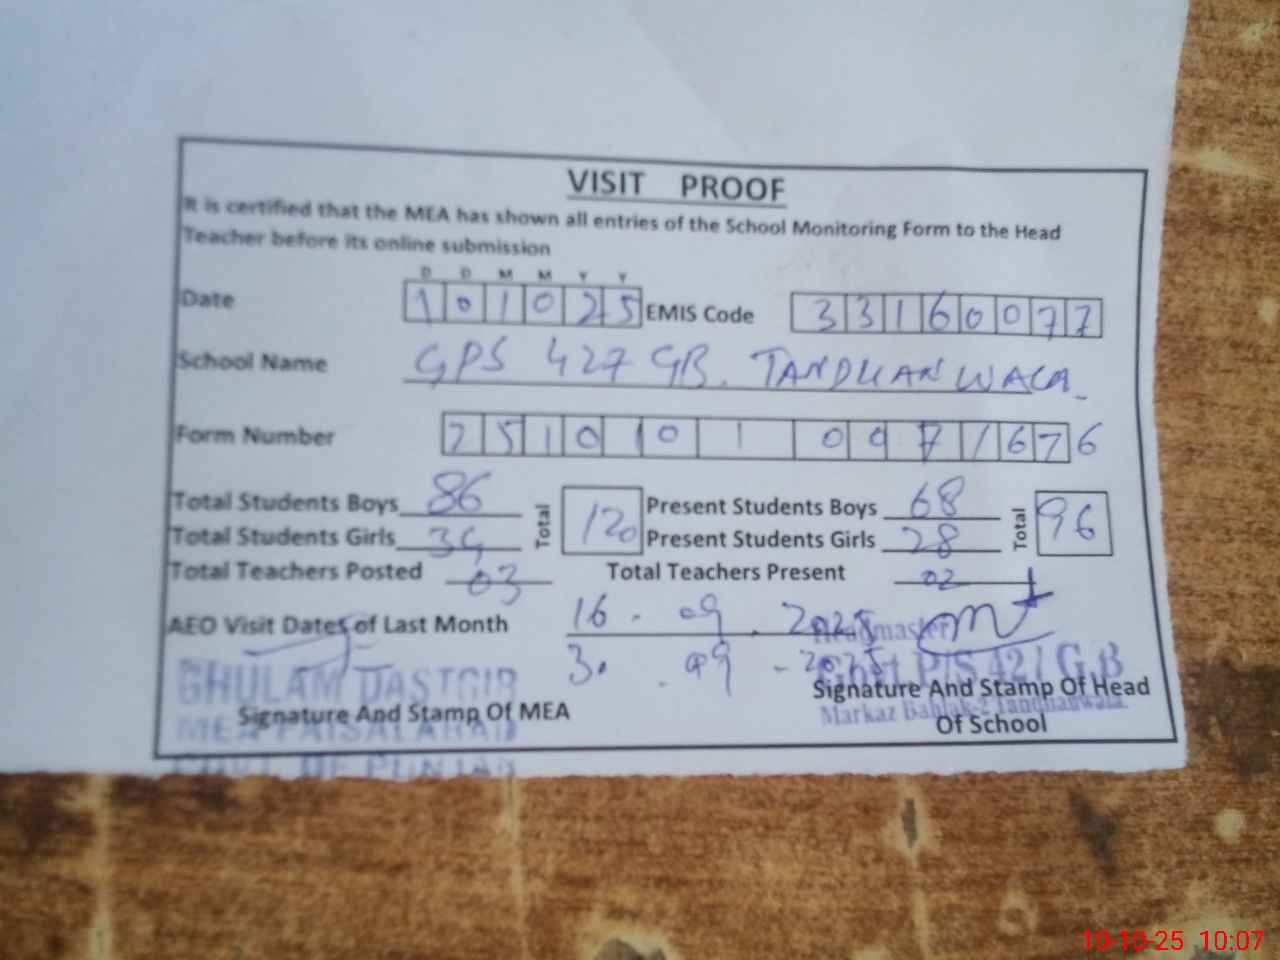 VISIT PROOF
It is certified that the MEA has shown all entries of the School Monitoring Form to the Head
Teacher before its online submission
D D M M Y Y
Date 1 0 1 0 2 5 EMIS Code 3 3 1 6 0 0 7 7
School Name GPS 427 GB. TANDLIANWALA
Form Number 2 5 1 0 1 0 1 0 9 7 1 6 7 6
Total Students Boys 86 Total 120 Present Students Boys 68 Total 96
Total Students Girls 34 Present Students Girls 28
Total Teachers Posted 03 Total Teachers Present 02
AEO Visit Dates of Last Month 16. 09. 2025
Headmaster
30. 09 - 2025
GHULAM DASTGIR
Govt P/S 427 G.B
Signature And Stamp Of MEA
Signature And Stamp Of Head
Of School
MEA FAISALABAD
Markaz Tandlianwala
GOVT. OF PUNJAB
10-10-25 10:07